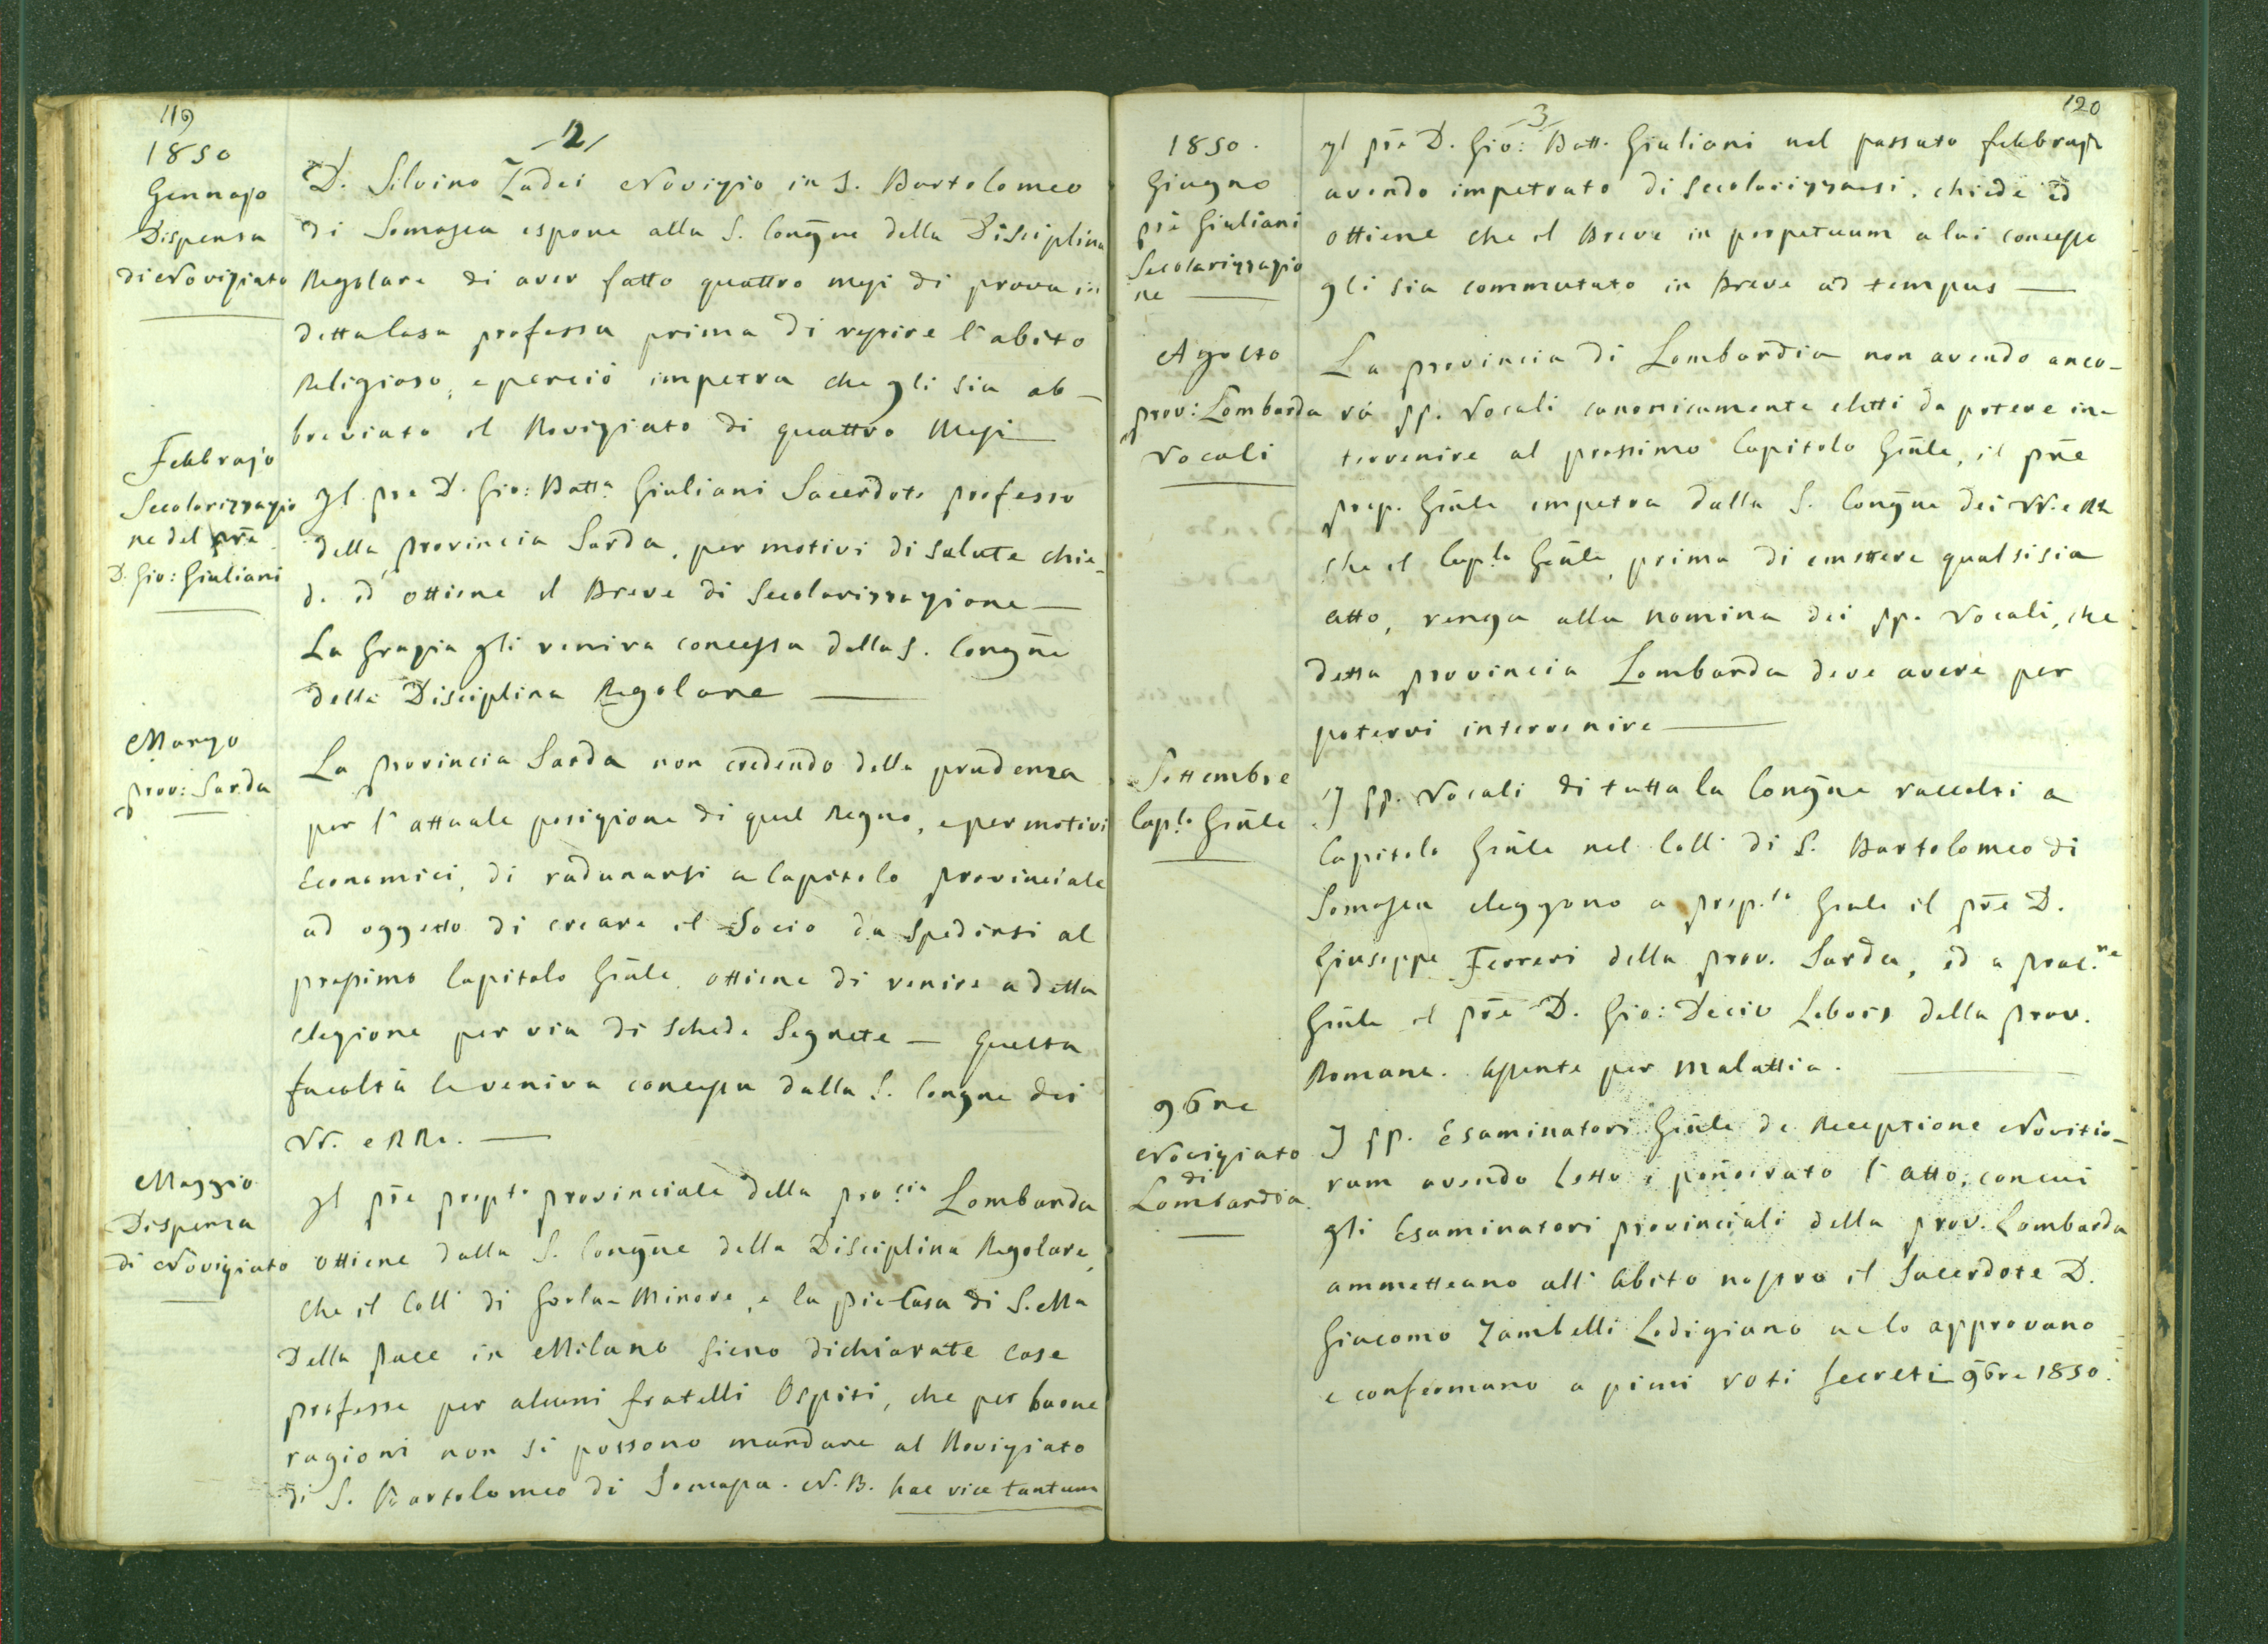 119
-2-
1850
Gennajo
Dispensa
di Novizziato
D. Silvino Zadei Novizio in S. Bartolomeo
di Somasca espone alla S. Congñe della Disciplina
Regolare di aver fatto quattro mesi di prova in
detta Casa professa prima di vestire l'abito
Religioso, e perciò impetra che gli sia ab-
breviato il Noviziato di quattro Mesi —
Febbrajo
Secolarizzazio
ne del pr̃e
D. Gio: Giuliani
Il pre D. Gio: Batt.a Giuliani Sacerdote professo
della provincia Sarda, per motivi di salute chie-
de ed ottiene il Breve di Secolarizzazione —
La Grazia gli veniva concessa dalla S. Congñe
della Disciplina Regolare —
Marzo
prov: Sarda
La provincia Sarda non credendo della prudenza
per l'attuale posizione di quel Regno, e per motivi
Economici, di radunarsi a Capitolo provinciale
ad oggetto di creare il Socio da Spedirsi al
prossimo Capitolo Gñle, ottiene di venire a detta
elezione per via di schede Segrete — Questa
facoltà le veniva concessa dalla S. Congne dei
VV. e RRi. —
Maggio
Dispensa
di Noviziato
Il pr̃e prep.to provinciale della pro.cia Lombarda
ottiene dalla S. Congñe della Disciplina Regolare,
che il Coll. di Gorla-Minore, e la pia Casa di S. Ma
Della Pace in Milano sieno dichiarate Case
professe per alcuni fratelli Ospiti, che per buone
ragioni non si possono mandare al Noviziato
di S. Bartolomeo di Somasca. N.B. hac vice tantum
120
-3-
1850.
Giugno
pr̃e Giuliani
Secolarizzazio
ne —
Il pr̃e D. Gio: Batt. Giuliani nel passato febbrajo
avendo impetrato di secolarizzarsi, chiede ed
ottiene che il Breve in perpetuum a lui concesso
gli sia commutato in Breve ad tempus —
Agosto
prov: Lombarda
Vocali
La provincia di Lombardia non avendo anco-
ra pp. Vocali canonicamente eletti da potere in-
tervenire al prossimo Capitolo Gñle, il pr̃e
prep. Gñle impetra dalla S. Congñe dei VV. e RR
che il Cap.lo Gñle, prima di emettere qualsisia
atto, venga alla nomina dei pp. Vocali, che
detta provincia Lombarda deve avere per
potervi intervenire —
Settembre
Cap.lo Gñle
I pp. Vocali di tutta la Congñe raccolti a
Capitolo Gñle nel Coll. di S. Bartolomeo di
Somasca eleggono a prep.to Gnle il pr̃e D.
Giuseppe Ferreri della prov. Sarda, ed a proc.re
Gñle il pr̃e D. Gio: Decio Libois della prov.
Romana. Assente per malattia. —
9bre
Noviziato
di
Lombardia
I pp. Esaminatori Gñle de Receptione Novitio-
rum avendo letto e l'atto, con cui
gli Esaminatori provinciali della prov. Lombarda
ammetteano all'abito nostro il Sacerdote D.
Giacomo Zambelli Lodigiano lo approvano
e confermano a pieni voti secreti 9bre 1850.